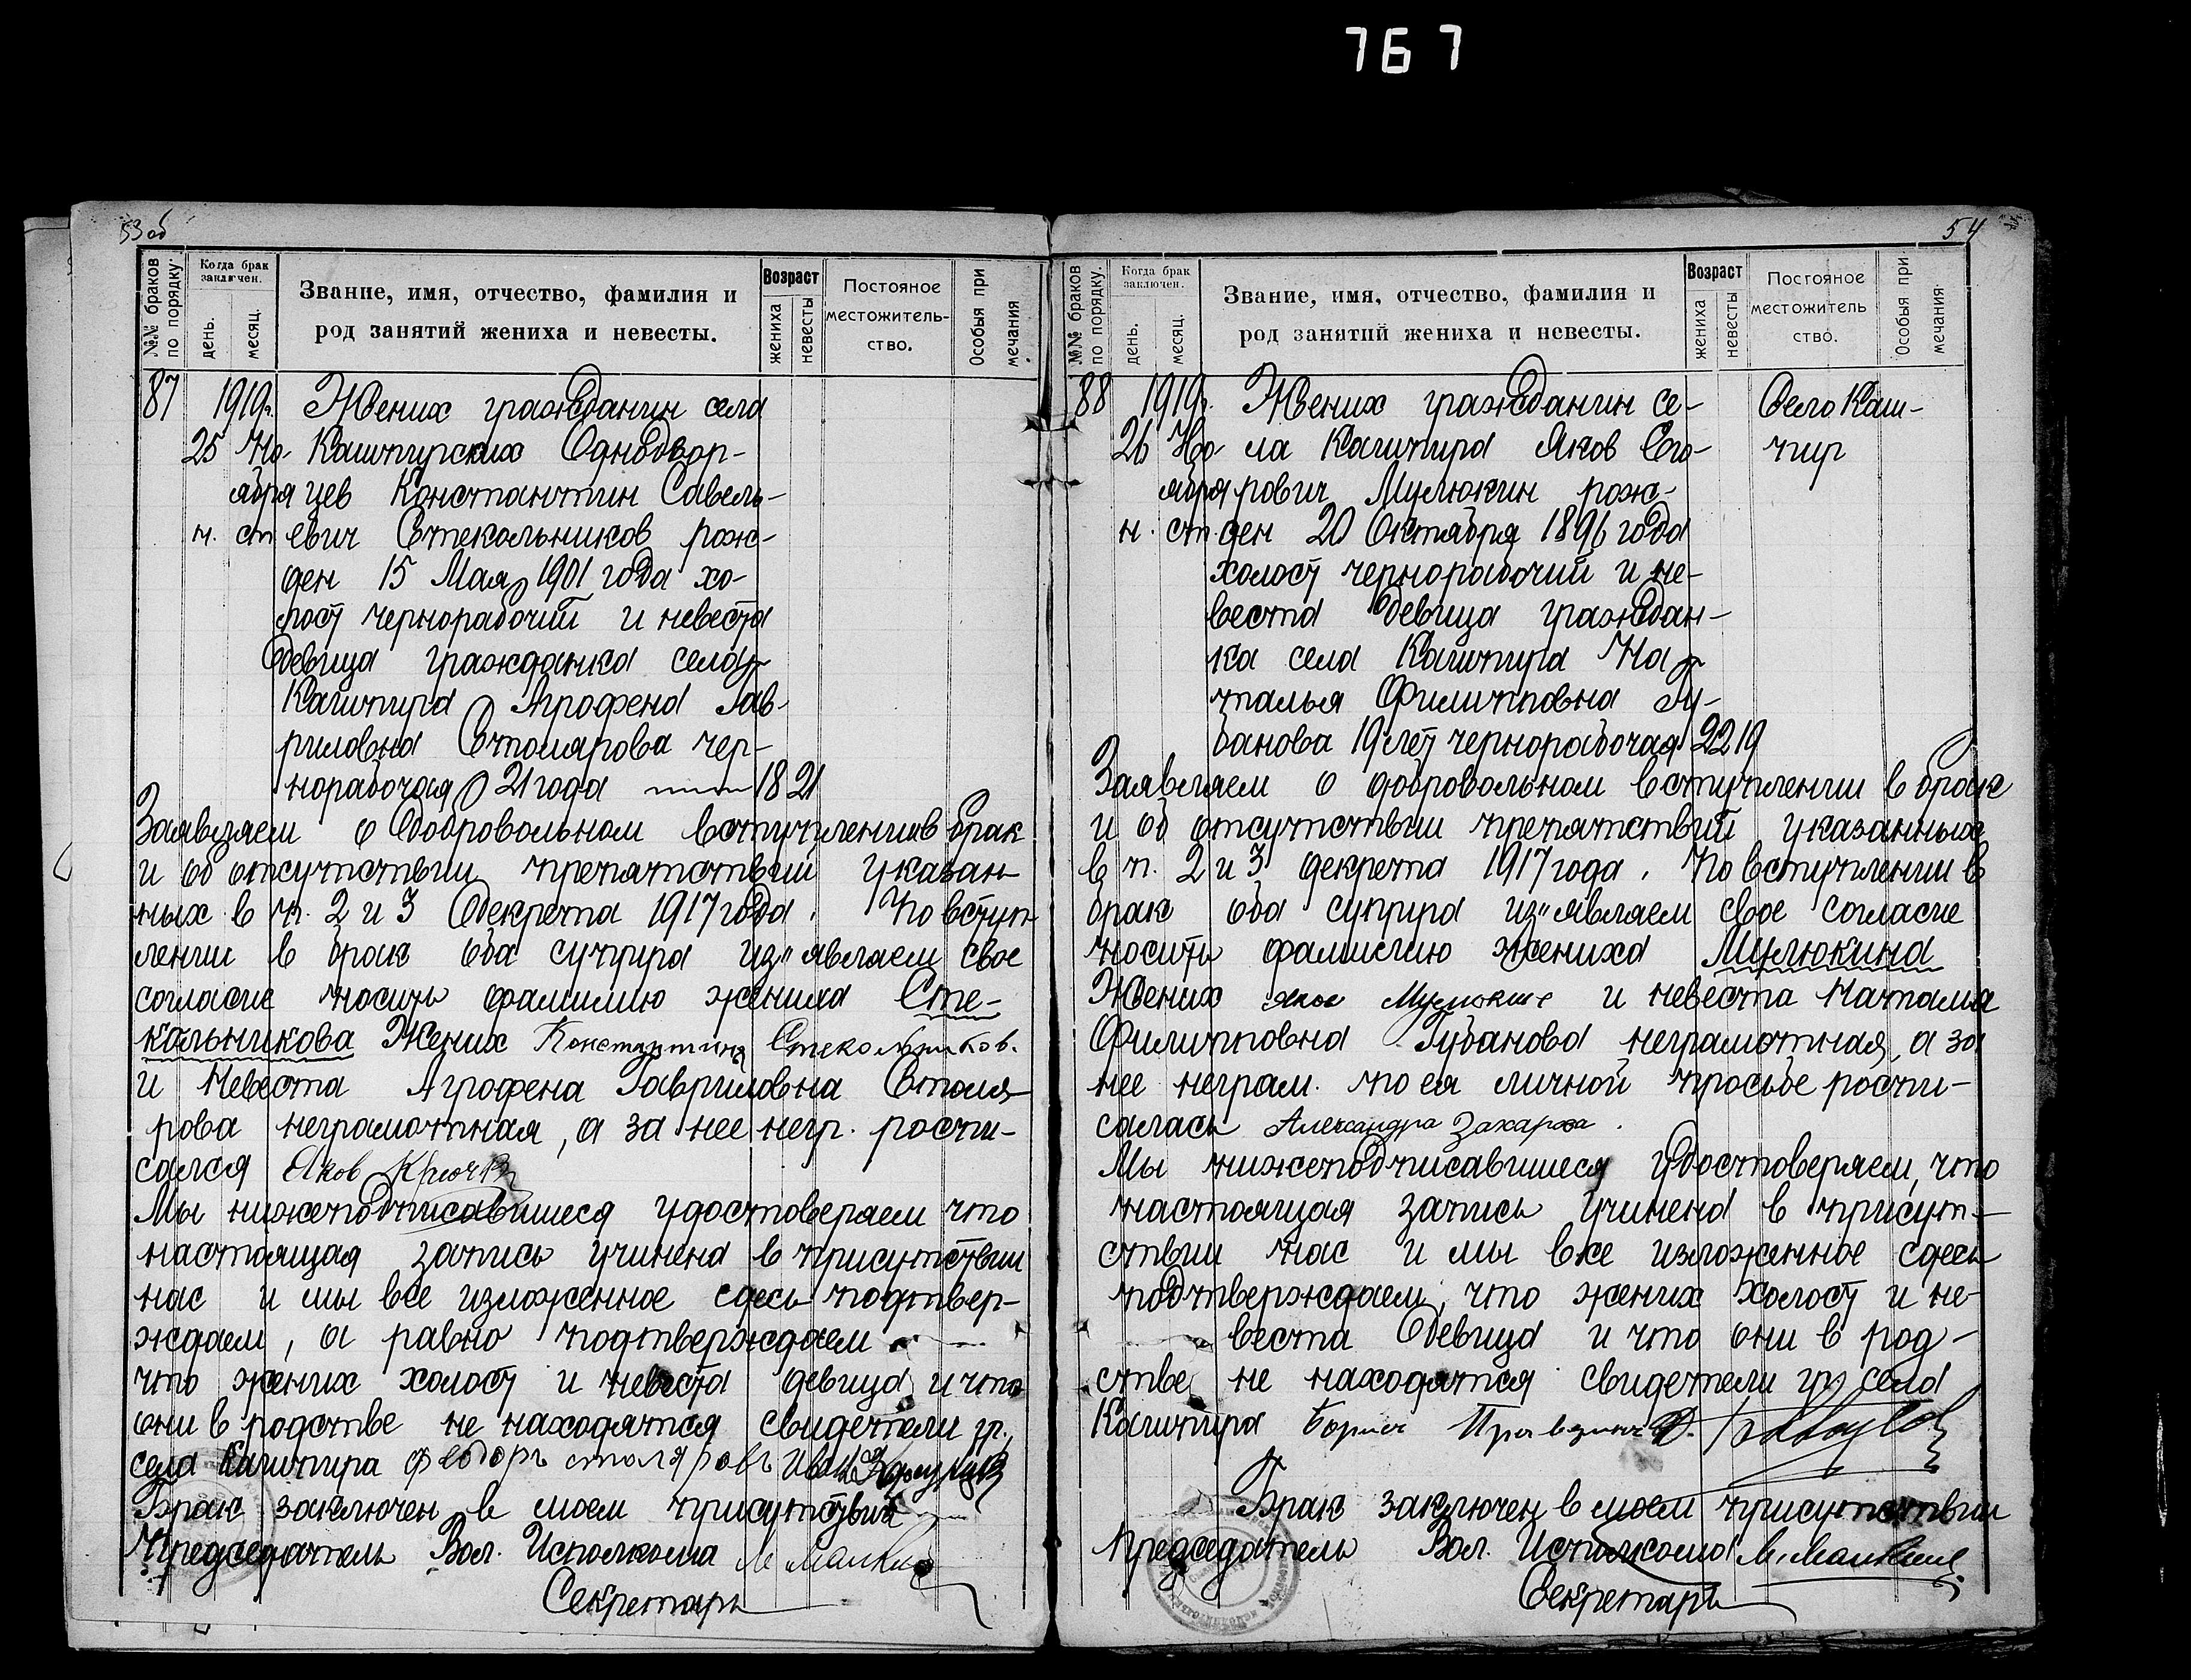 767
53 об
№№ браков по порядку.
Когда брак заключен.
день.
месяц.
Звание, имя, отчество, фамилия и
род занятий жениха и невесты.
Возраст
жениха
невесты
Постояное
местожитель-
ство.
Особыя при
мечания
87 1919г. Жених гражданин села
25 Но- Кашпирских Однодвор-
ября цев Константин Савель-
н. ст евич Стекольников рож-
ден 15 Мая 1901 года хо-
лост чернорабочий и невеста
девица гражданка села
Кашпира Агрофена Гав-
риловна Столярова чер-
норабочая 21 года 18 21
Заявляем о добровольном вступлении в брак
и об отсутствии препятствий указан
ных в п. 2 и 3 декрета 1917 года. По вступ
лении в брак оба супруга из"являем свое
согласие носить фамилию жениха Сте-
кольникова Жених Константин Стекольников.
и Невеста Агрофена Гавриловна Столя
рова неграмотная, а за нее негр. распи-
сался Яков
Мы нижеподписавшиеся удостоверяем что
настоящая запись учинена в присутствии
нас и мы все изложенное здесь подтвер-
ждаем, а равно подтверждаем
что жених холост и невеста девица и что
они в родстве не находятся свидетели гр.
села Кашпира Федоръ столяровъ Иван
Брак заключен в моем присутствии
Председатель Вол. Исполкома
Секретарь
54
№№ браков по порядку.
Когда брак заключен.
день.
месяц.
Звание, имя, отчество, фамилия и
род занятий жениха и невесты.
Возраст
жениха
невесты
Постояное
местожитель
ство.
Особыя при
мечания
88 1919г. Жених гражданин се- Село Каш-
26 Но- ла Кашпира Яков Его- пир
ября рович Мулюкин рож-
н. ст. ден 20 Октября 1896 года
холост чернорабочий и не-
веста девица граждан-
ка села Кашпира На
талья Филипповна Гу-
банова 19 лет чернорабочая 22 19
Заявляем о добровольном вступлении в брак
и об отсутствии препятствий указанных
в п. 2 и 3 декрета 1917 года. По вступлении в
брак оба супруга из"являем свое согласие
носить фамилию жениха Мулюкина
Жених Яков Мулюкин и невеста Наталья
Филипповна Губанова неграмотная, а за
нее неграм. по ея личной просьбе распи-
салась Александра Захарова.
Мы нижеподписавшиеся удостоверяем, что
настоящая запись учинена в присут-
ствии нас и мы все изложенное здесь
подтверждаем, что жених холост и не-
веста девица и что они в род-
стве не находятся свидетели гр села
Кашпира Борис
Брак заключен в моем присутствии
Председатель Вол. Исполкома
Секретарь